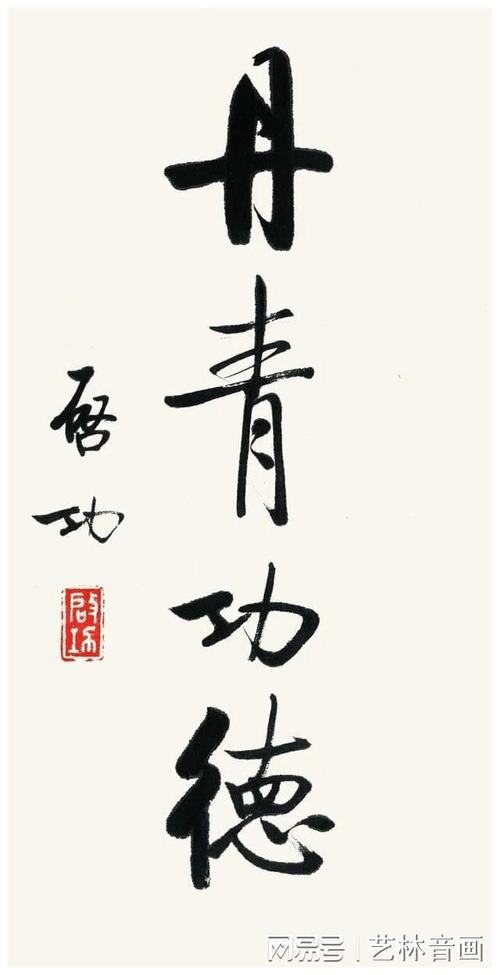 丹青功德
启功
启功
网易号 | 艺林音画